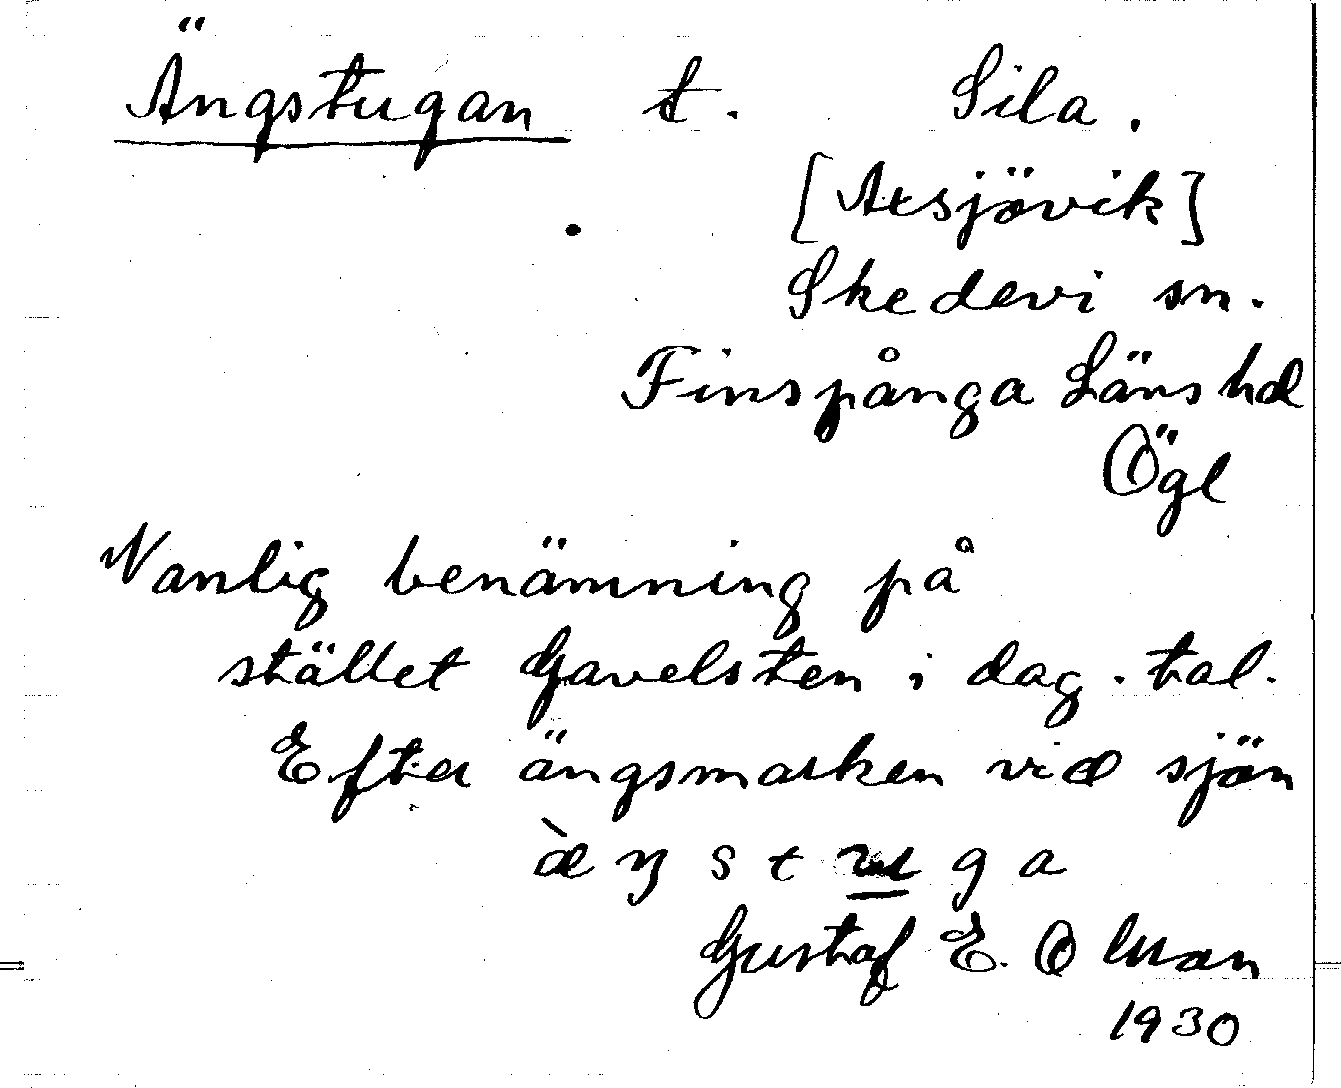 Ängstugan t. Sila.
[Axsjövik]
Skedevi sn.
Finspånga Läns hd
Ögl
Vanlig benämning på
stället Gavelsten i dag. tal.
Efter ängsmarken vid sjön
æ̀ŋstuga
Gustaf E. Olman
1930